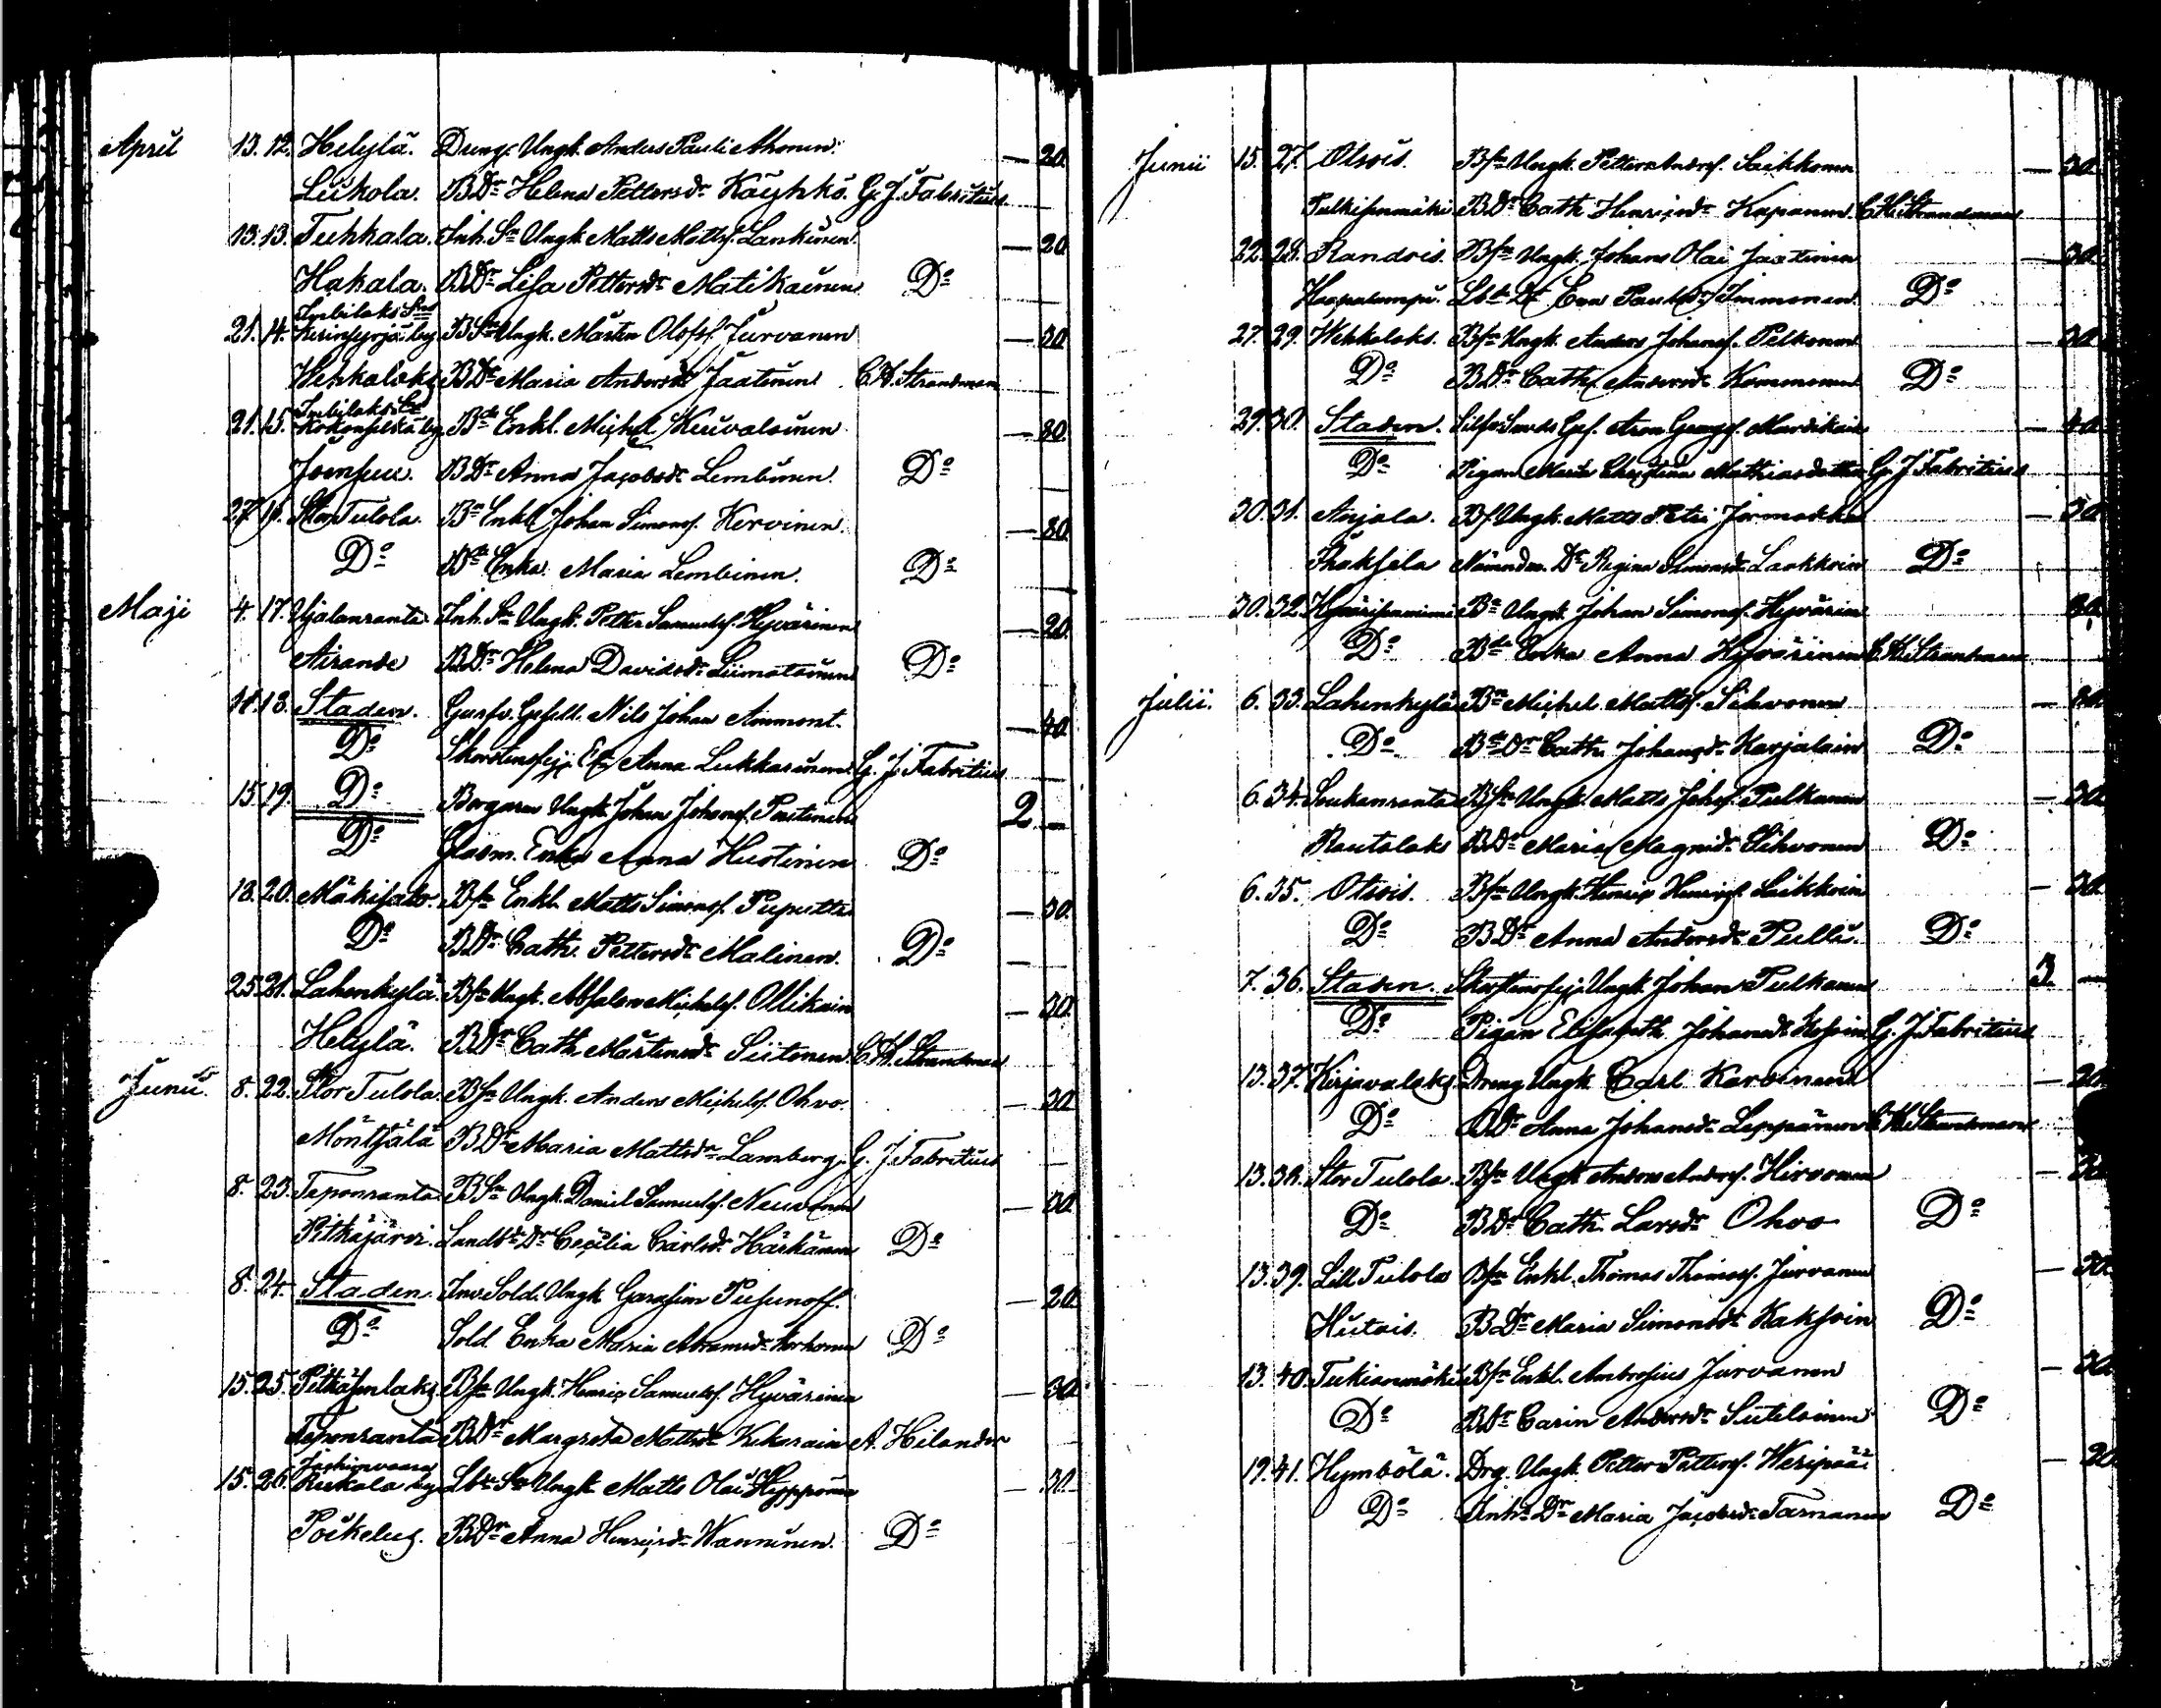 April 13. 12. Helylä. Dreng. Ungk. Anders Pauli Ahonen. — 20.
Leikola. BDr Helena Pettersdr Käyhkö. G. J. Fabritius
13. 13. Tuhkala. Inh. Sn Ungk. Matts Mattss. Lankinen. — 20.
Hakala. BDr Lisa Pettersdr Matikainen Do
Imbilaks Snd
21. 14. by BSn Ungk. Mårten Olofss. Jurvanen — 30.
Wehkalaks BDr Maria Andersdr Jaatinen C. H. Strandman
Imbilaks
21. 15. by Bde Enkl. Michel — 30.
Joenpeu. BDr Anna Jacobsdr Lembinen. Do
27. 16. Stor Tulola. Bn Enkl. Johan Simonss. Kervinen. — 30.
Do Bde Enka. Maria Lembinen. Do
Maji 4. 17. Ujalanranta. Inh. Sn Ungk. Petter Samuelss. Hyvärinen — 20.
Airande BDr Helena Davidsdr Liimatainen Do
14. 18. Staden. Garfv. Gesell. Nils Johan Ammont. — 40.
Do Skorstensfej. Anna Lukkarinen. G. J. Fabritius
15. 19. Do Borgaren Ungk. Johan Johanss. Partinen 2 —
Do Glasm. Enka Anna Hustinen Do
18. 20. Mäkisalo. Bsn Enkl. Matts Simonss. Puputti — 30.
Do BDr Cath. Pettersdr Malinen. Do
25. 21. Lahenkylä. Bsn Ungk. Absalon Michelss. Ollikain — 30.
Helylä. BDr Cath. Mårtensdr Siitonen C. H. Strandman
Junii. 8. 22. Stor Tulola. Bsn Ungk. Anders Michelss. Ohvo. — 30.
Möntsälä BDr Maria Mattsdr Lamberg. G. J. Fabritius
8. 23. Teponranta. BSn Ungk. Daniel Samuelss. Neuvonen — 30.
Pitkäjärvi. Landbde Dr Cecilia Carlsdr Härkönen Do
8. 24. Staden. Inv. Sold. Ungk. Garasim — 20.
Do Sold. Enka Maria Abramsdr Korhonen Do
15. 25. Bsn Ungk. Henric Samuelss. Hyvärinen — 30.
Teponranta BDr Margreta Mattsdr Kekarain A. Helander
15. 26. Reekala by Lbde Sn Ungk. Matts Olai Hyppönen — 30.
Poikelus. BDr Anna Henricsdr Wanninen. Do
Junii 15. 27. Otsois. Bsn Ungk. Petter Anderss. Laikkonen — 30.
BDr Cath. Henricsdr Kapanen C. H. Strandman
22. 28. Randois. Bsn Ungk. Johans Olai Jaatinen — 30.
Haapalampi. Lbde Dr Eva Paulsdr Immonen. Do
27. 29. Wehkalaks. Bsn Ungk. Anders Johanss. Pelkonen — 30.
Do BDr Cath. Andersdr Kommonen Do
29. 30. Staden. Silfv. Smeds Ges. Aron — 40.
Do Pigan Maria Christina Mathiasdotter G. J. Fabritius
30. 31. Anjala. Bs. Ungk. Matts Petri — 30.
Thaksela Nämndem. Dr Regina Simonsdr Laukkoin Do
30. 32. Bn Ungk. Johan Simonss. Hyvärin 30.
Do Bde Enka Anna Hyvärinen C. H. Strandman
Julii. 6. 33. Lahenkylä Bn Michel Mattss. Sihvonen — 30.
Do Bde Dr Cath. Johansdr Karjalain Do
6. 34. Soukanranta Bsn Ungk. Matts Johss. Pulkanen — 30.
Rautalaks BDr Maria Magnidr Sihvonen Do
6. 35. Otsois. Bsn Ungk. Henric Henricss. Laikkoin — 30.
Do BDr Anna Andersdr Pulli. Do
7. 36. Staden. Skorstensfej. Ungk. Johan Pulkanen 3. —
Do Pigan Elisabeth Johansdr G. J. Fabritius
13. 37. Kirjavalaks Dreng Ungk. Carl Karvinen — 20.
Do BDr Anna Johansdr Leppänen C. H. Strandman
13. 38. Stor Tulola. Bsn Ungk. Anders Anderss. Hirvonen — 30.
Do BDr Cath. Larsdr Ohvo Do
13. 39. Lill Tulola Bsn Enkl. Thomas Thomass. Jurvanen — 30.
Hutois. BDr Maria Simonsdr Kaksoin Do
13. 40. Tukianmäki Bsn Enkl. Ambrosius Jurvanen — 30.
Do BDr Carin Andersdr Sutelainen Do
19. 41. Hymbölä. Drg. Ungk. Petter Petterss. Weripää — 20.
Do Inh. Dr Maria Jacobsdr Tarnanen Do